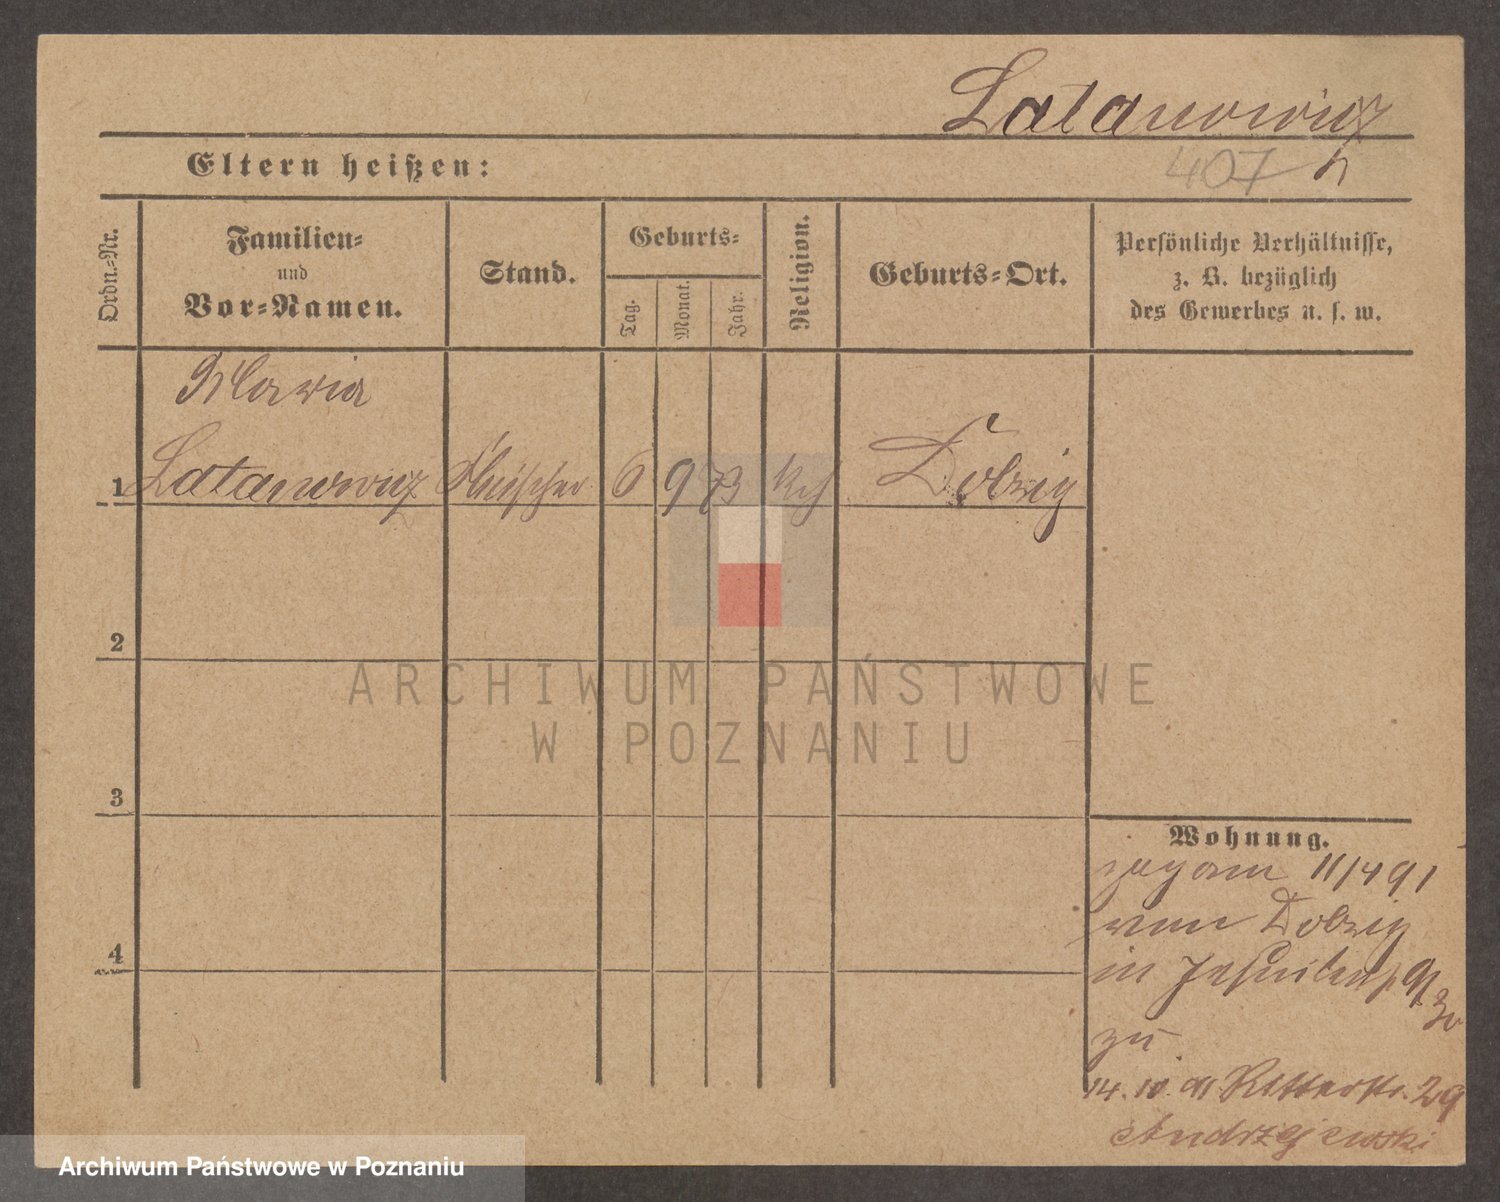 Latanowicz
407
Eltern heißen:
Ordn.-Nr.
Familien-
und
Vor-Namen.
Stand.
Geburts-
Tag.
Monat.
Jahr.
Religion.
Geburts-Ort.
Persönliche Verhältnisse,
z. B. bezüglich
des Gewerbes u. s. w.
Maria
1 Latanowicz 6 9 73 kth Dolzig
2
3
4
Wohnung.
zug am 11/4 91
von Dolzig
in Jesuitenstr 9
zu
14. 10. 91 Ritterstr. 29
Andrzejewski
ARCHIWUM PAŃSTWOWE
W POZNANIU
Archiwum Państwowe w Poznaniu